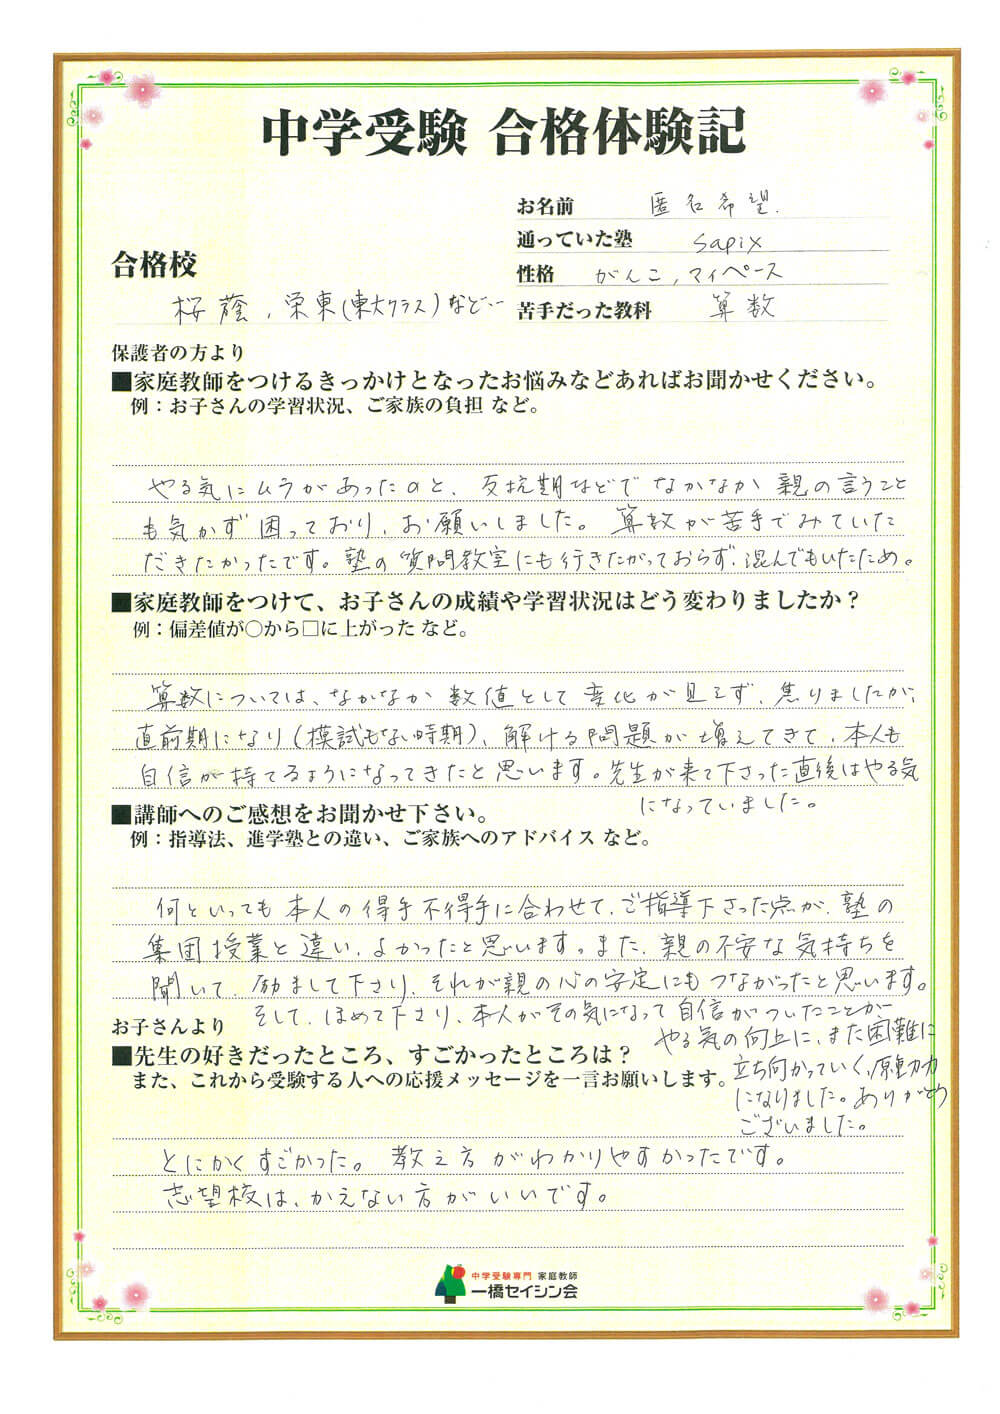 中学受験 合格体験記
お名前 匿名希望.
通っていた塾 sapix
性格 がんこ,マイペース
合格校
桜蔭,栄東(東大クラス)など…
苦手だった教科 算数
保護者の方より
■家庭教師をつけるきっかけとなったお悩みなどあればお聞かせください。
例：お子さんの学習状況、ご家族の負担 など。
やる気にムラがあったのと、反抗期などでなかなか親の言うこと
も気かず困っており、お願いしました。算数が苦手でみていた
だきたかったです。塾の質問教室にも行きたがっておらず、混んでもいたため。
■家庭教師をつけて、お子さんの成績や学習状況はどう変わりましたか？
例：偏差値が○から□に上がった など。
算数については、なかなか数値として変化が見えず、焦りましたが、
直前期になり(模試もない時期)、解ける問題が増えてきて、本人も
自信が持てるようになってきたと思います。先生が来て下さった直後はやる気
になっていました。
■講師へのご感想をお聞かせ下さい。
例：指導法、進学塾との違い、ご家族へのアドバイス など。
何といっても本人の得手不得手に合わせて、ご指導下さった点が、塾の
集団授業と違い、よかったと思います。また、親の不安な気持ちを
聞いて、励まして下さり、それが親の心の安定にもつながったと思います。
そして、ほめて下さり、本人がその気になって自信がついたことが
やる気の向上に、また困難に
立ち向かっていく、原動力
になりました。ありがとう
ございました。
お子さんより
■先生の好きだったところ、すごかったところは？
また、これから受験する人への応援メッセージを一言お願いします。
とにかくすごかった。教え方がわかりやすかったです。
志望校は、かえない方がいいです。
中学受験専門 家庭教師
一橋セイシン会